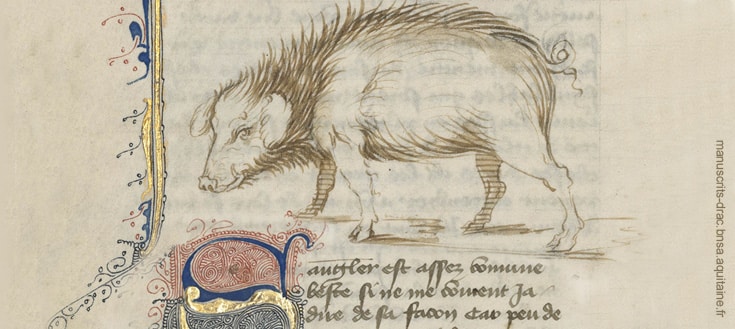 Sangler est assez comune
beste si ne me couient Ja
dire de sa facon Car peu de
manuscrits-drac.bnsa.aquitaine.fr